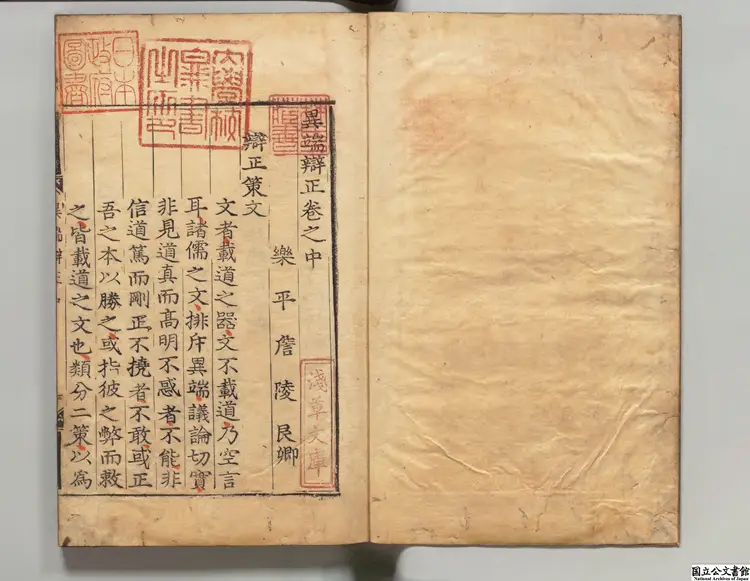 異端辯正卷之中
樂平詹陵艮卿
辯正策文
文者載道之器文不載道乃空言
耳諸儒之文排斥異端議論切實
非見道真而高明不惑者不能非
信道篤而剛正不撓者不敢或正
吾之本以勝之或指彼之弊而救
之皆載道之文也類分二策以為
淺草文庫
日本政府圖書
國立公文書館
National Archives of Japan